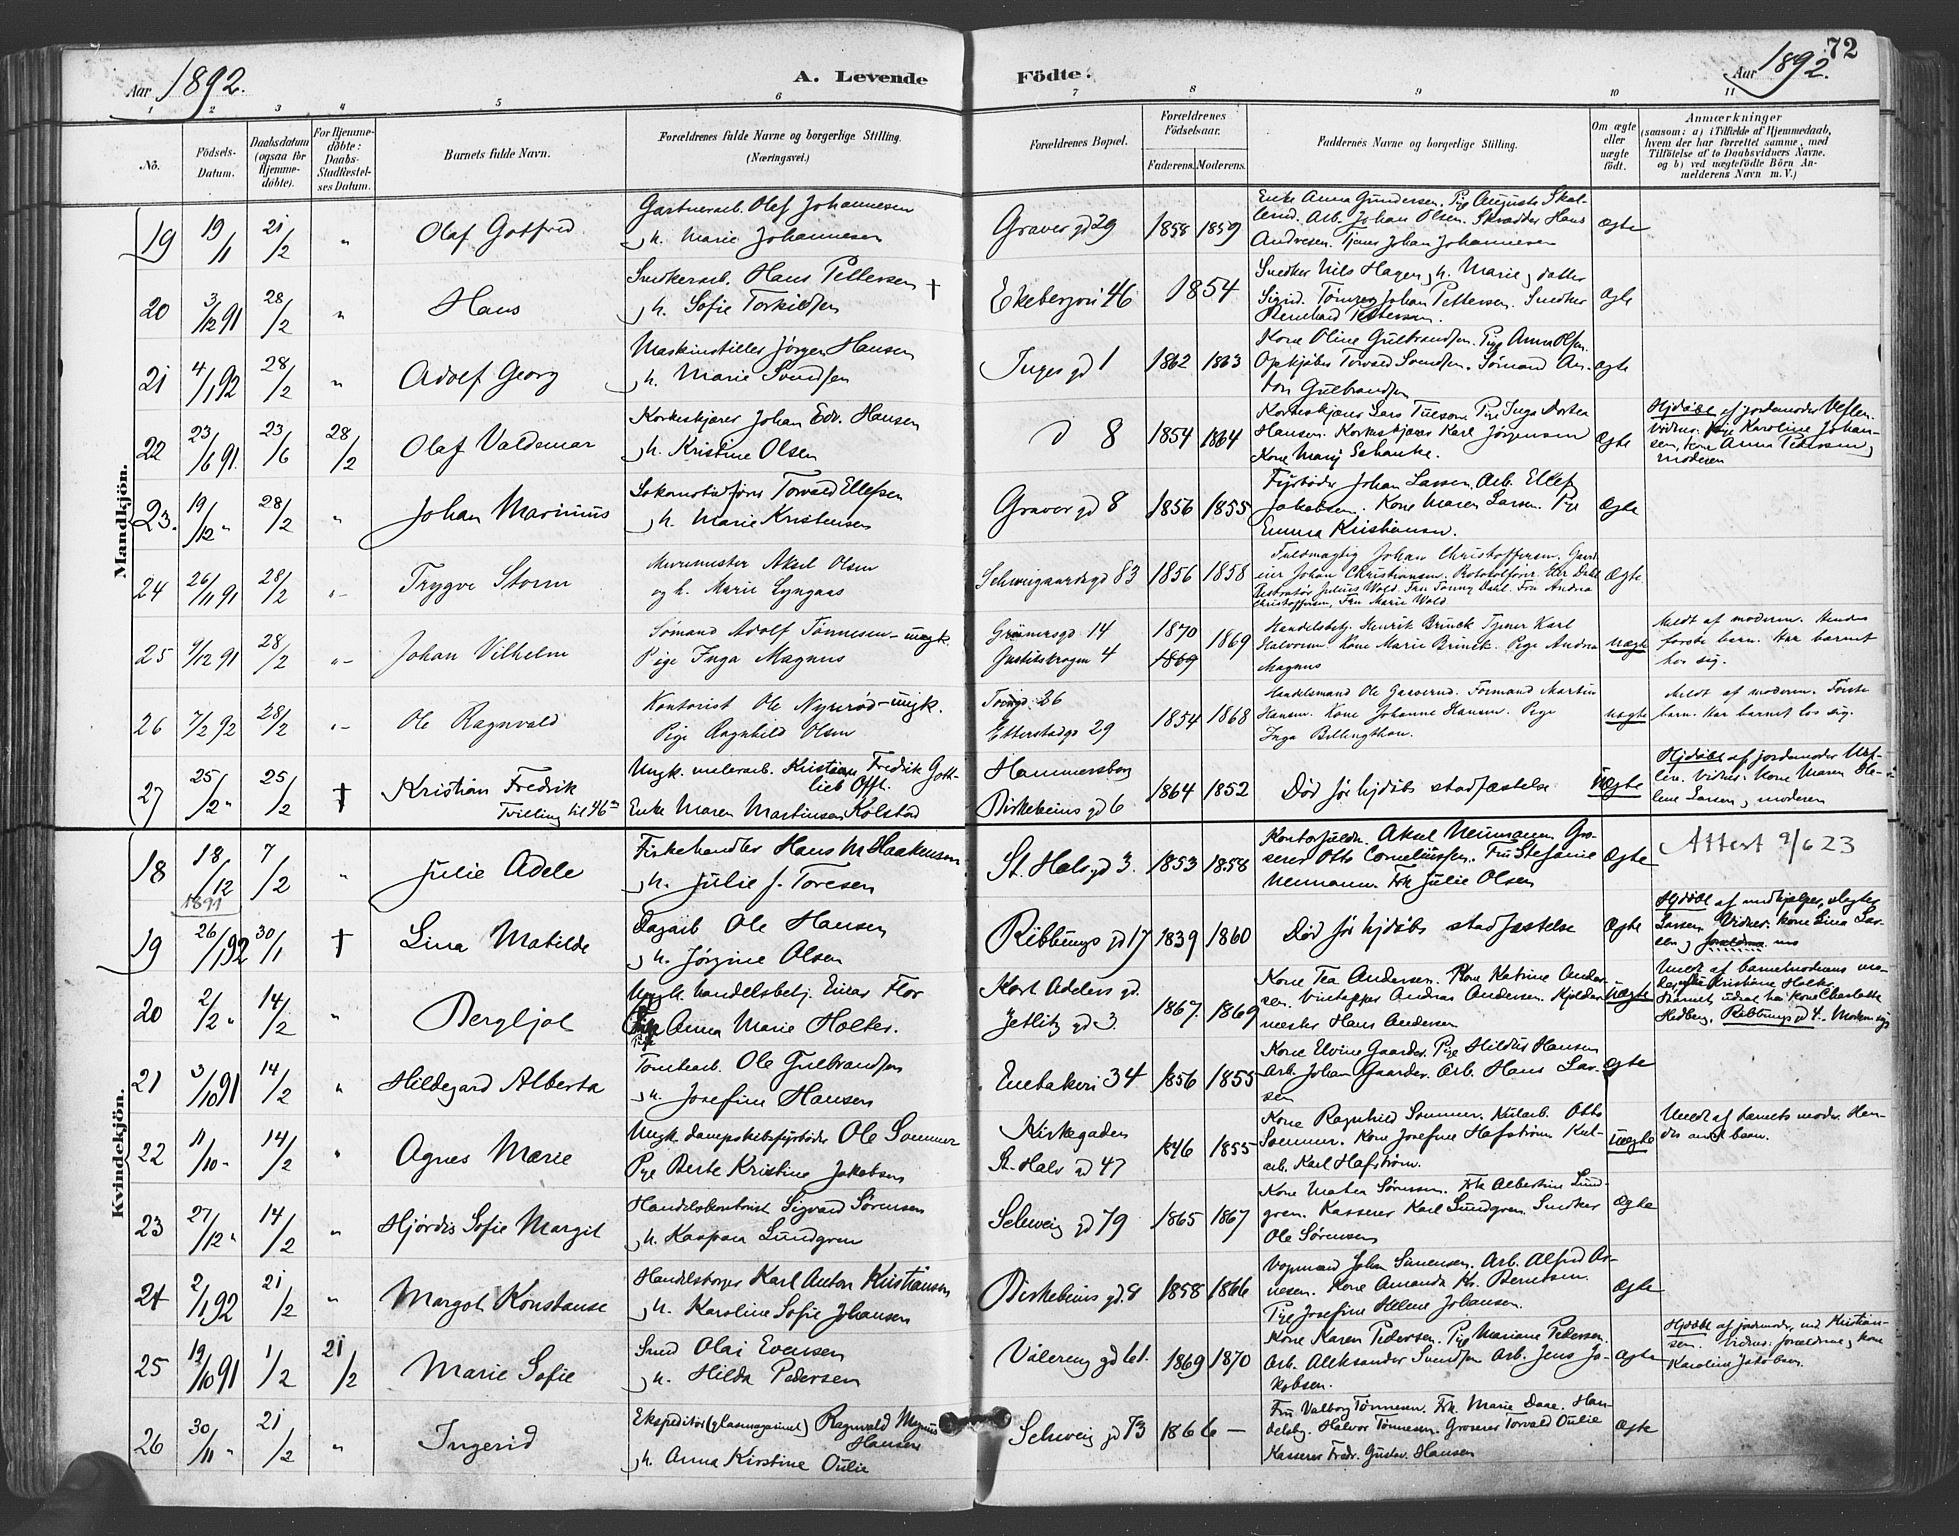 Aar 1892. A. Levende Födte. Aar 1892. 72
1 2 3 4 5 6 7 8 9 10 11
No.
Födsels-Datum.
Daabsdatum (ogsaa for Hjemmedöbte).
For Hjemmedöbte: Daabs-Stadfæstelses Datum.
Barnets fulde Navn.
Forældrenes fulde Navne og borgerlige Stilling. (Næringsvei.)
Forældrenes Bopæl.
Forældrenes Födselsaar. Faderens. Moderens.
Faddernes Navne og borgerlige Stilling.
Om ægte eller uægte födt.
Anmærkninger (saasom: a) i Tilfælde af Hjemmedaab, hvem der har forrettet samme, med Tilföielse af to Daabsvidners Navne, og b) ved uægtefödte Börn Anmelderens Navn m. V.)
Mandkjön.
19 19/11 21/2 " Olaf Gotfred
Gartnerarb. Olaf Johannesen
h. Marie Johannesen
Graver gd 29 1858 1859
Enke Anna Gundersen. Pige Augusta Skol-
Arb. Johan Olsen. Skrædder Hans
Andresen. Tjener Johan Johannesen
Ægte
20 3/12 91 28/2 " Hans
Snedkerarb. Hans Pettersen †
h. Sofie Torkildsen
Ekebergvei 46 1854
Snedker Nils Hagen, h. Marie, datter
Sigrid. Tømrer Johan Pettersen. Snedker
Bernhard Pettersen.
Ægte
21 4/1 92 28/2 " Adolf Georg
Maskinstiller Jørgen Hansen
h. Marie Svendsen
Inges gd 1 1862 1863
Kone Oline Gulbrandsen. Pige Anna Olsen.
Opkjøber Torvald Svendsen. Sømand An-
ton Gulbrandsen
Ægte
22 23/6 91. 23/6 28/2 Olaf Valdemar
Korkeskjærer Johan Edv. Hansen
h. Kristine Olsen
8 1854 1864
Korkeskjærer Lars Pige Inga Dortea
Hansen. Korkeskjærer Karl Jørgensen
Kone Marij Schanke.
Ægte
Hjdøbt af jordemoder
Vidner: Pige Karoline Johan-
sen, kone Anna Pedersen,
moderen
23. 19/12 " 28/2 " Johan Marinius
Lokomotivfører Torvald Ellefsen
h. Marie Kristensen
Graver gd 8 1856 1855
Fyrbøder Johan Larsen. Arb. Ellef
Jakobsen. Kone Maren Larsen. Pige
Emma Kristiansen.
Ægte
24 26/11 91 28/2 " Trygve Storm
Murermester Aksel Olsen
og h. Marie Lyngaas
Schweigaardsgd 83 1856 1858
Fuldmægtig Johan Christoffersen.
Johan Christiansen. Protokolfører Dahl
Julius Wold. Fru Fanny Dahl. Fru Andrea
Christoffersen, Fru Marie Wold
Ægte
25 9/12 91 28/2 " Johan Vilhelm
Sømand Adolf Tønnesen - ungk.
Pige Inga Magnus
Grünersgd 14
Justitskrogen 4
1870 1869 1869
Handelsbetj. Henrik Brinck. Tjener Karl
Halvorsen. Kone Marie Brinck. Pige Andrea
Magnus
uægte
Meldt af moderen. Hendes
første barn. Har barnet
hos sig.
26 7/2 92 28/2 " Ole Ragnvald
Kontorist Ole Nyrerød - ungk.
Pige Ragnhild Olsen
26
Etterstadgd 29
1854 1868
Handelsmand Ole Formand Martin
Hansen. Kone Johanne Hansen. Pige
Inga Billingthon.
uægte
Meldt af moderen. Første
barn. Har barnet hos sig.
27 25/2 " 25/2 † Kristian Fredrik
Tvilling til 46
Ungk. malerarb. Kristian Fredrik Gott-
lieb Offt.
Enke Maren Martinsen Kolstad
Hammersborg
Birkebeins gd 6
1864 1852
Død før hjdøbs stadfæstelse. Uægte
Hjdøbt af jordemoder
Vidner: Kone Maren He-
lene Larsen, moderen
Kvindekjön.
18 18/12 1891 7/2 " Julie Adele
Fiskehandler Hans M Haakensen
h. Julie J. Toresen
St. Hals gd 3. 1853 1858
Kontorfuldm. Aksel Neumann. Gro-
serer Otto Corneliussen. Fru Stefanie
Neumann. Frk Julie Olsen
Ægte
Attest 9/6 23
19 26/1 92 30/1 † Lina Matilde
Dagarb Ole Hansen
h. Jørgine Olsen
Ribbungs gd 17 1839 1860
Død før hjdøbs stadfæstelse Ægte
Hjdøbt af
Larsen. Vidner: kone Lina Lar-
sen,
20 2/2 " 14/2 " Bergljot
Ungk. handelsbetj. Einar Flor
Anna Marie Holter.
Kort Adelers gd.
Jetlitz gd 3.
1867. 1869
Kone Tea Andersen. Kone Katrine Ander-
sen. Vintapper Andreas Andersen. Kjelder-
mester Hans Andersen
Uægte
Meldt af barnemoderens mo-
der, Kristiane Holter.
Barnet udsat hos kone Charlotte
Hedberg, Ribbungs gd 4.
21 3/10 91 14/2 " Hildegard Alberta
Tomtearb. Ole Gulbrandsen
h. Josefine Hansen
Enebakvei 34 1856 1855
Kone Elvine Gaarder. Pige Hildur Hansen
Arb. Johan Gaarder. Arb. Hans Lar-
sen
Ægte
22 11/10 " 14/2 " Agnes Marie
Ungk. dampskibsfyrbøder Ole Sommer
Pige Berte Kristine Jakobsen
Kirkegaden
St. Halv gd 47
1846 1855
Kone Ragnhild Sommer. Kularb. Otto
Sommer. Kone Josefine Hafstrøm. Kul-
arb. Karl Hafstrøm.
Uægte
Meldt af barnets moder. Hen-
des andet barn.
23 27/12 " 14/2 " Hjørdis Sofie Margit
Handelskontorist Sigvard Sørensen
h. Kaspara Lundgren
Schweig gd 79 1865 1867
Kone Matea Sørensen. Frk Albertine Lund-
gren. Kasserer Karl Lundgren. Snedker
Ole Sørensen
Ægte
24 2/1 92 21/2 " Margot Konstanse
Handelsborger Karl Anton Kristiansen
h. Karoline Sofie Johansen
Birkebeins gd. 8 1858 1866
Vognmand Johan Simensen. Arb. Alfred Ar-
nesen. Kone Amanda Kr. Berntsen.
Pige Josefine Helene Johansen.
Ægte
25 12/10 91 1/2 21/2 Marie Sofie
Smed Olai Evensen
h. Hilda Pedersen
Vålereng gd 61. 1869 1870
Kone Karen Pedersen. Pige Mariane Pedersen.
Arb. Aleksander Svendsen Arb. Jens Ja-
kobsen.
Ægte
Hjdøbt af jordmoder, Kristian-
sen. Vidner: forældrene, kone
Karoline Jakobsen.
26 30/11 " 21/2 " Ingerid
Ekspeditør (glasmagasinet) Ragnvald Magnus
Hansen
h. Anna Kirstine Oulie
Schweig gd 73 1866 —
Fru Valborg Tønnesen. Frk. Marie Dane. Han-
delsbg. Halvor Tønnesen. Groserer Torvald Oulie
Kasserer Fredr. Gustav Hansen
Ægte